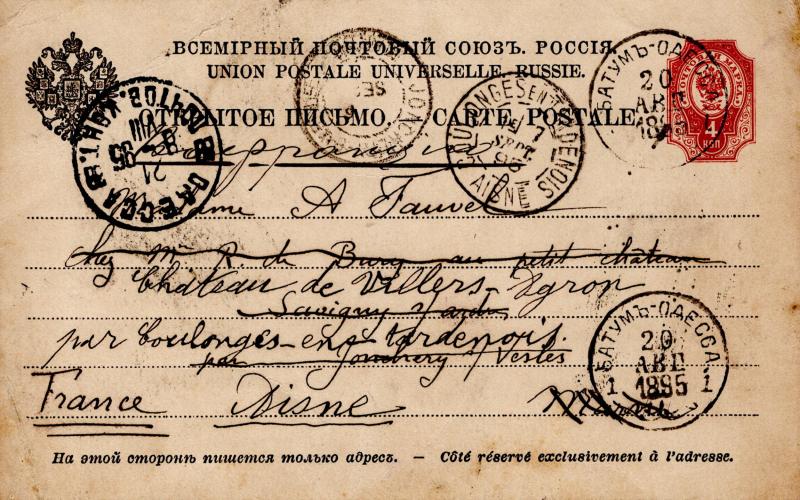 ВСЕМІРНЫЙ ПОЧТОВЫЙ СОЮЗЪ. РОССІЯ.
UNION POSTALE UNIVERSELLE. RUSSIE.
ОТКРЫТОЕ ПИСЬМО. — CARTE POSTALE.
БАТУМЪ-ОДЕССА
20
АВГ
1895
4
КОП
COULONGES EN TARDENOIS
7
SEPT
95
AISNE
ОДЕССА
21
VIII
95
A Fauvel
chez Mr R. de Bury au petit château
Château de Villers-Agron
Savigny s/ardre
par Coulonges-en-tardenois.
par Jonchery s/Vesle
France Aisne Marne
БАТУМЪ-ОДЕССА
20
АВГ
1 1895 1
На этой сторонѣ пишется только адресъ. — Côté réservé exclusivement à l'adresse.